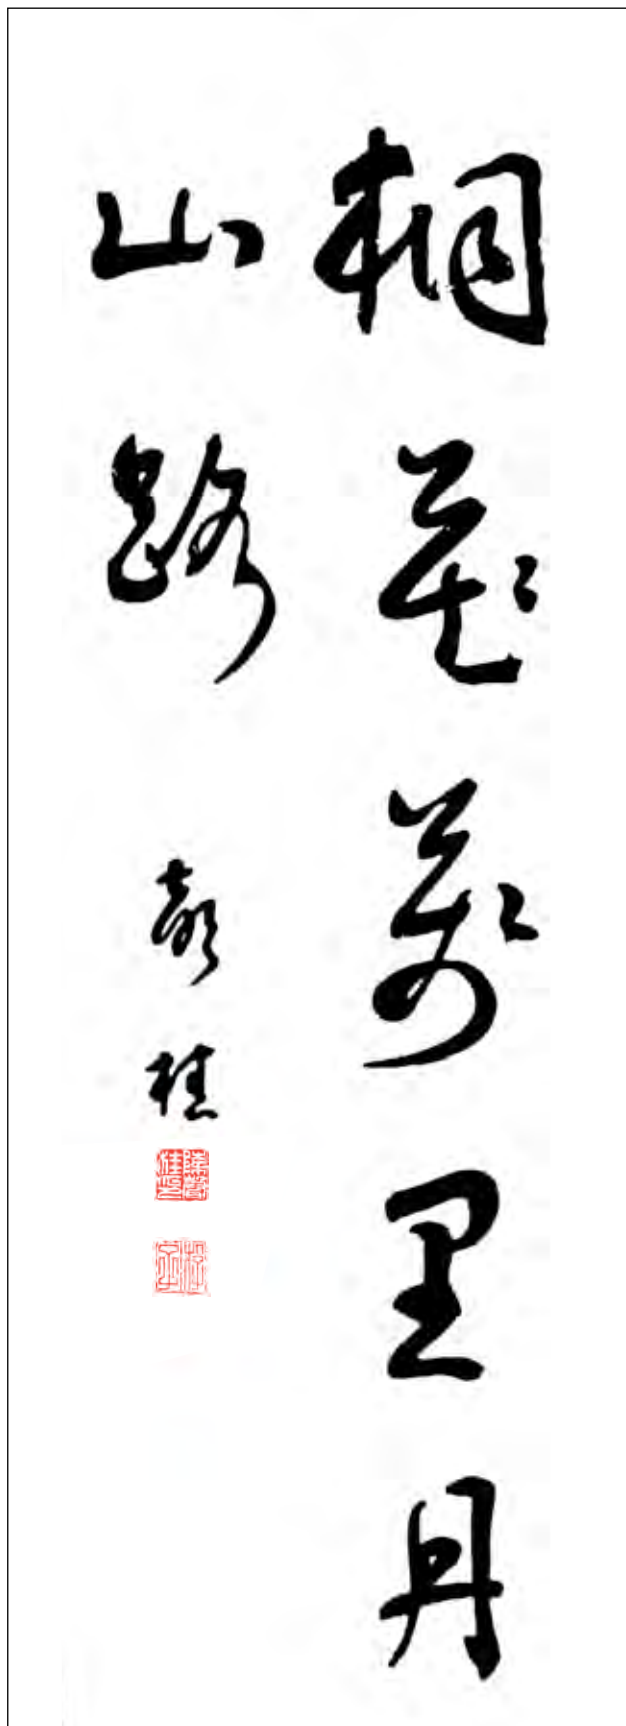 桐花萬里丹
山路
桂